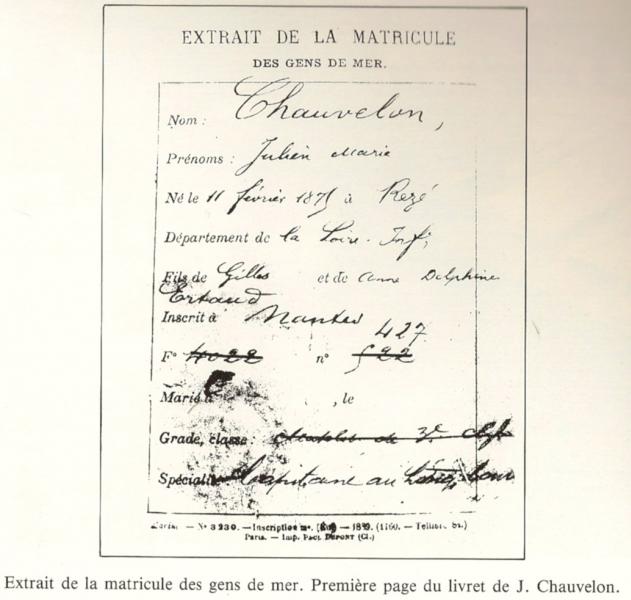 EXTRAIT DE LA MATRICULE
DES GENS DE MER.
Nom : Chauvelon,
Prénoms : Julien Marie
Né le 11 février 1875 à Rezé
Département de la Loire-Inf;
Fils de Gilles et de Anne Delphine
Ertaud
Inscrit à Nantes
427
F° 4022 n° 522
Marié à , le
Grade, classe : Matelot de 3e
Spécialité Capitaine au Long Cours
N° 3230. — Inscription
Paris. — Imp. PAUL DUPONT (Cl.)
Extrait de la matricule des gens de mer. Première page du livret de J. Chauvelon.